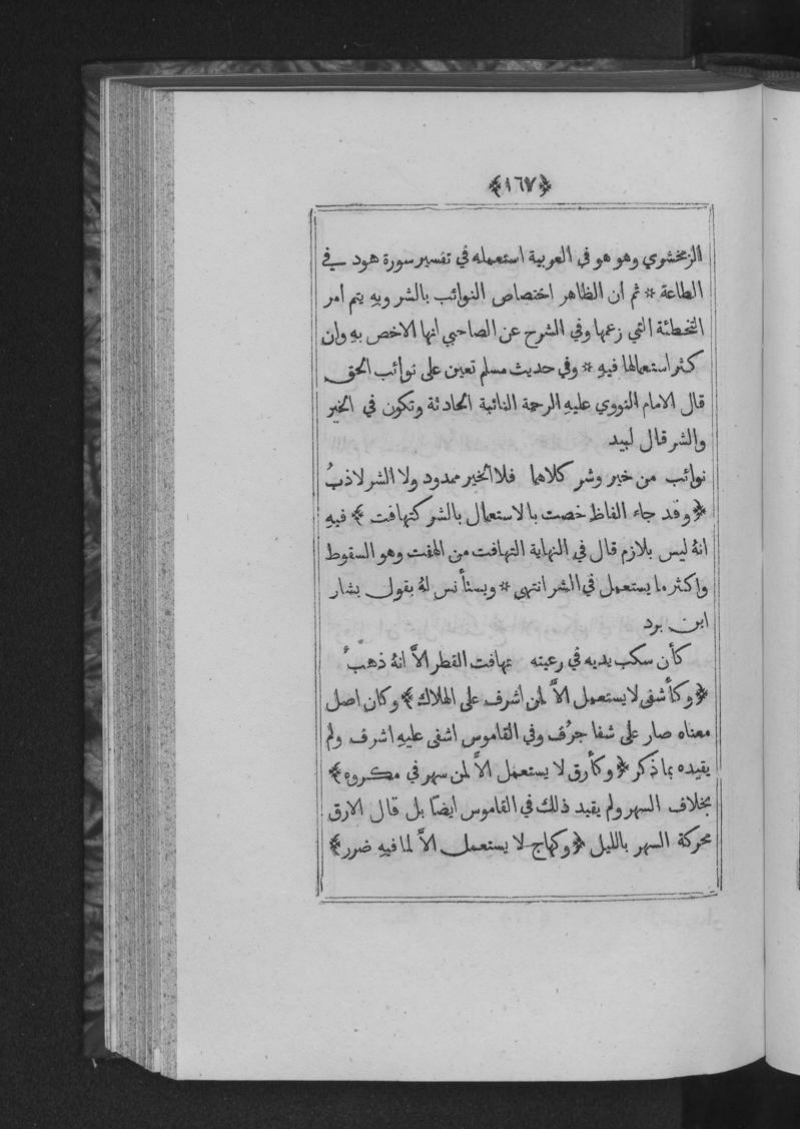 ﴿١٦٧﴾
الزمخشوي وهو هو في العربية استعمله في تفسير سورة هود في
الطاعة * ثم ان الظاهر اختصاص النوائب بالشر وبهِ يتم امر
التخطئة التي زعمها وفي الشرح عن الصاحبي انها الاخص بهِ وان
كثر استعمالها فيهِ * وفي حديث مسلم تعين على نوائب الحق
قال الامام النووي عليهِ الرحمة النائبة الحادثة وتكون في الخير
والشر قال لبيد
نوائب من خير وشر كلاهما فلا الخير ممدود ولا الشر لاذبُ
﴿وقد جاء الفاظ خصت بالاستعمال بالشر كتهافت﴾ فيهِ
انهُ ليس بلازم قال في النهاية التهافت من الهفت وهو السقوط
واكثر ما يستعمل في الشر انتهى * ويستأنس لهُ بقول بشار
ابن برد
كأن سكب يديه في رعيته تهافت القطر الاَّ انهُ ذهبُ
﴿وكأشفى لا يستعمل الاَّ لمن اشرف على الهلاك﴾ وكان اصل
معناه صار على شفا جرُف وفي القاموس اشفى عليهِ اشرف ولم
يقيده بما ذكر ﴿وكأرق لا يستعمل الاَّ لمن سهر في مكروه﴾
بخلاف السهر ولم يقيد ذلك في القاموس ايضًا بل قال الارق
محركة السهر بالليل ﴿وكهاج لا يستعمل الاَّ لما فيهِ ضرر﴾